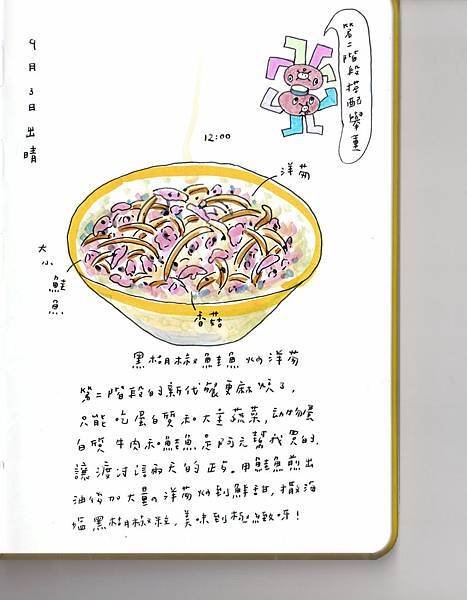 9月3日出晴
第二階段搭配舉重
12:00
洋蔥
大小
鮭魚
香菇
黑胡椒鮭魚炒洋蔥
第二階段的新代餐更麻煩了,
只能吃蛋白質和大量蔬菜,動物蛋
白質牛肉和鮭魚是阿元幫我買的,
讓渡過這兩天的。用鮭魚煎出
油後加大量的洋蔥炒到鮮甜,撒海
塩黑胡椒粒,美味到極緻呀!